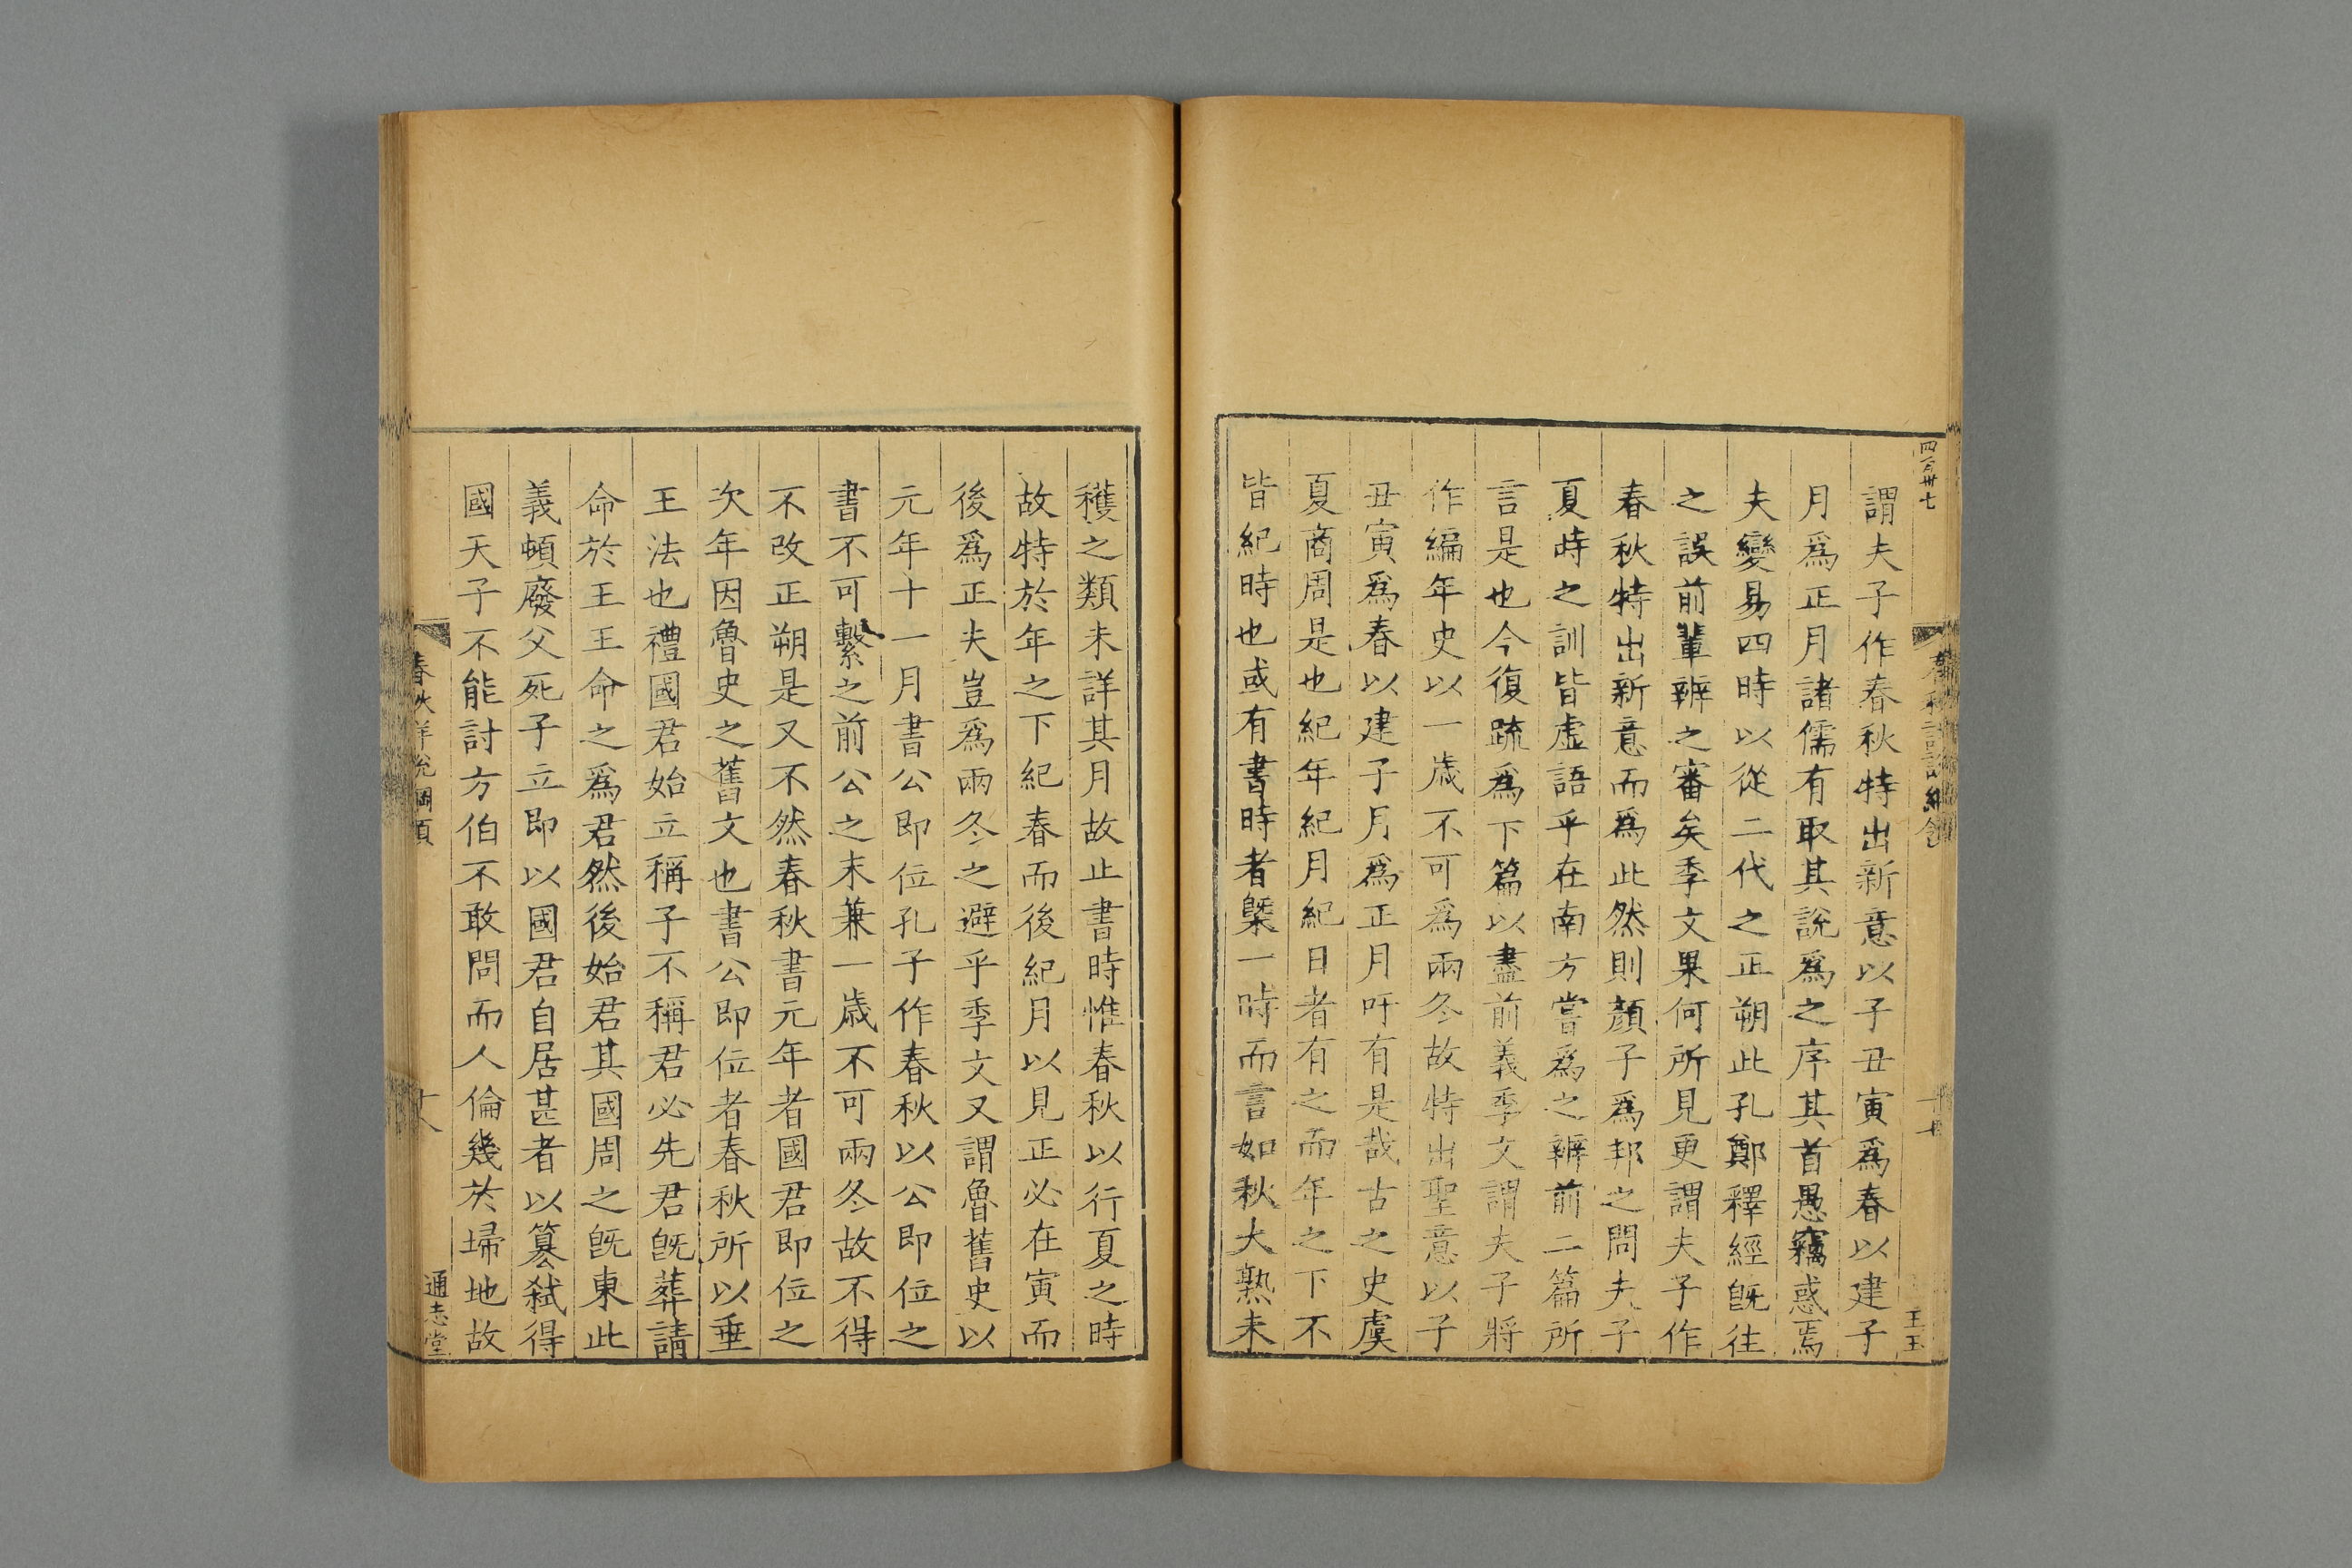 四百卅七
謂夫子作春秋特出新意以子丑寅爲春以建子
月爲正月諸儒有取其說爲之序其首愚竊惑焉
夫變易四時以從二代之正朔此孔鄭釋經旣往
之誤前輩辨之審矣季文果何所見更謂夫子作
春秋特出新意而爲此然則顏子爲邦之問夫子
夏時之訓皆虛語乎在南方嘗爲之辨前二篇所
言是也今復疏爲下篇以盡前義季文謂夫子將
作編年史以一歳不可爲兩冬故特出聖意以子
丑寅爲春以建子月爲正月吁有是哉古之史虞
夏商周是也紀年紀月紀日者有之而年之下不
皆紀時也或有書時者槩一時而言如秋大熟未
王玉
穫之類未詳其月故止書時惟春秋以行夏之時
故特於年之下紀春而後紀月以見正必在寅而
後爲正夫豈爲兩冬之避乎季文又謂魯舊史以
元年十一月書公即位孔子作春秋以公即位之
書不可繫之前公之末兼一歳不可兩冬故不得
不改正朔是又不然春秋書元年者國君即位之
次年因魯史之舊文也書公即位者春秋所以垂
王法也禮國君始立稱子不稱君必先君旣葬請
命於王王命之爲君然後始君其國周之旣東此
義頓廢父死子立即以國君自居甚者以簒弑得
國天子不能討方伯不敢問而人倫幾於埽地故
春秋詳說綱領
十八
通志堂